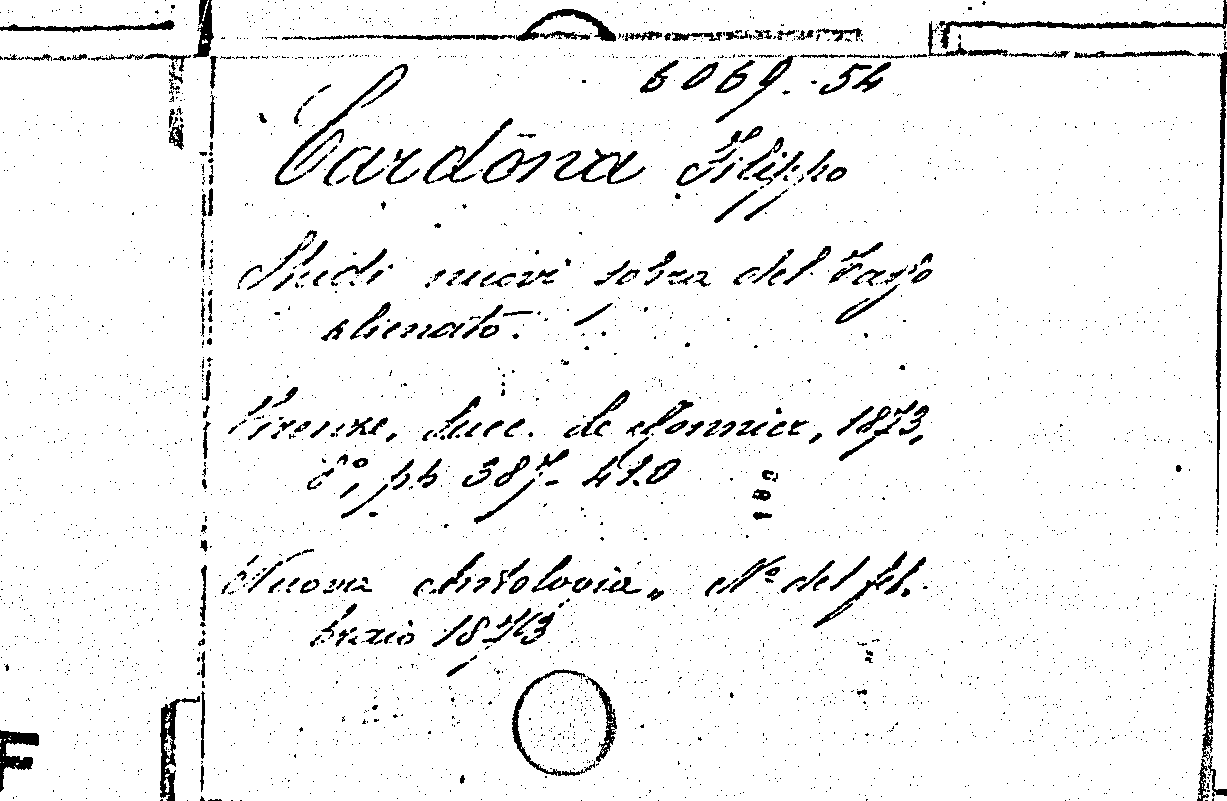 6069.-54
Cardona Filippo
Studi nuovi sopra del Tasso
alienato.
Firenze, Succ. Le Monnier, 1873,
8°, pp 387-410
"Nuova Antologia„ N° del feb.
braio 1873